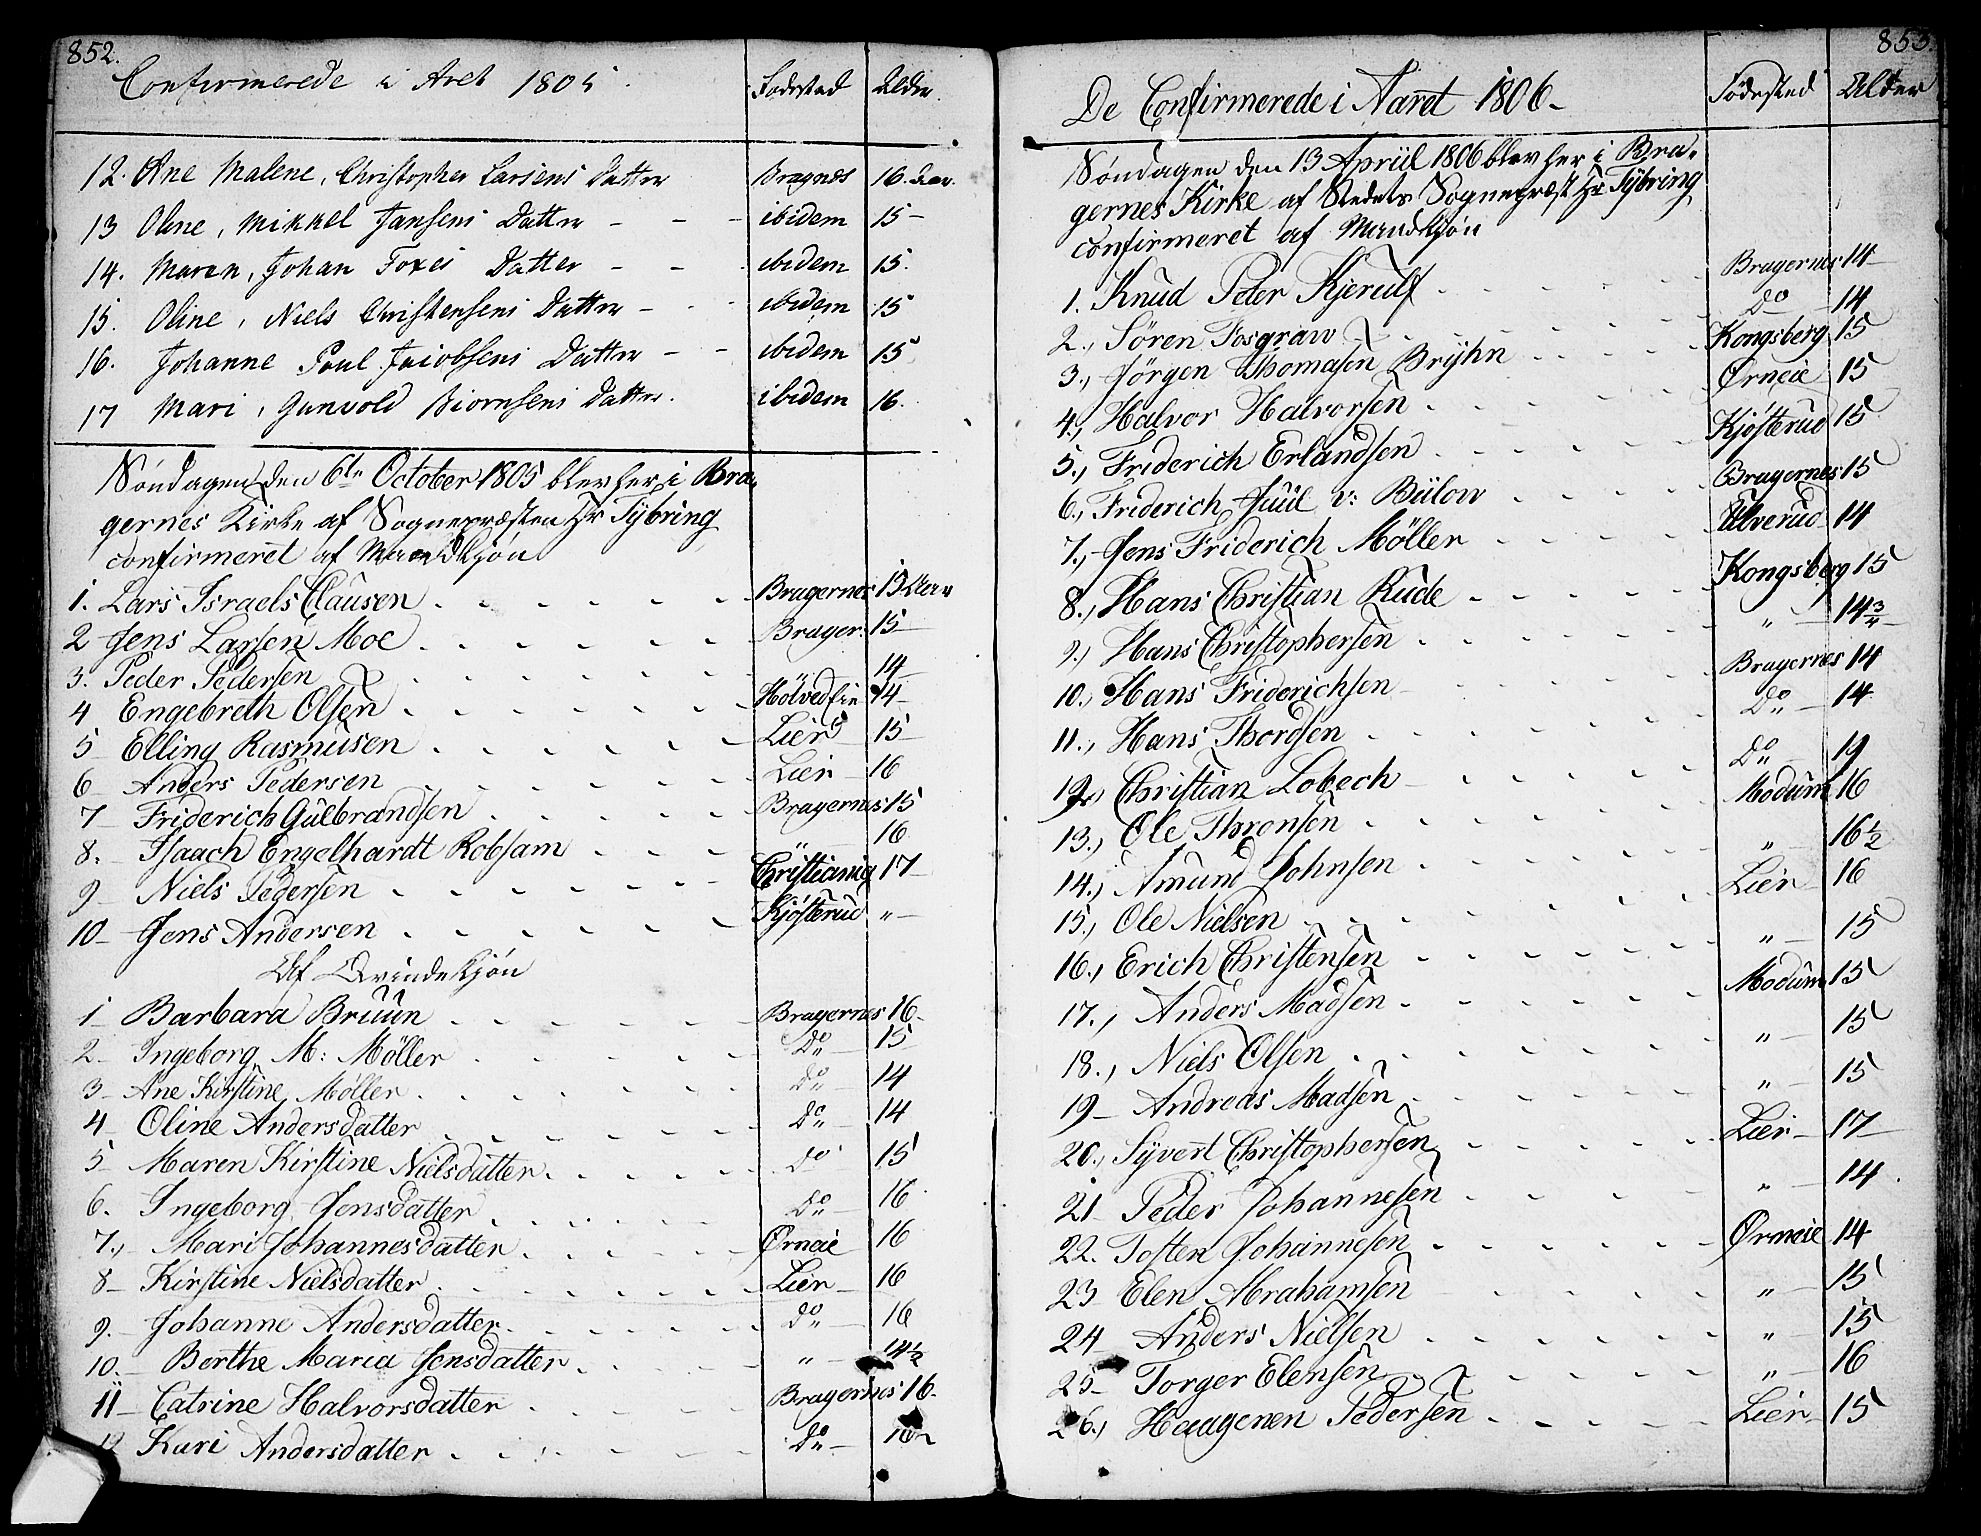 852.
Confirmerede i Aret 1805. Fødested Alder.
12. Ane Malene, Christopher Larsens Datter Bragnes 16. Aar.
13 Oline, Mikkel Jansens Datter - - - ibidem 15 -
14. Maren, Johan Foxes Datter - - - ibidem 15.
15. Oline, Niels Christensens Datter - - - ibidem 15
16. Johanne Poul Jacobsens Datter - - ibidem 15
17 Mari, Gunvold Biørnsens Datter. ibidem 16.
Söndagen den 6te October 1805 blev her i Bra-
gernes Kirke af Sognepræsten Hr Tÿbring
confirmeret af Mandkjön
1. Lars Israels Clausen Bragernes 15 Aar
2 Jens Larsen Moe Brager: 15 -
3. Peder Pedersen 14 -
4 Engebreth Olsen 14 -
5 Elling Rasmusen Lier 15 -
6 - Anders Pedersen Lier - 16
7 - Friderich Gulbrandsen Bragernes 15
8. - Isaach Engelhardt Robsam " 16
9 - Niels Pedersen Christiania 17 -
10 - Jens Andersen Kjösterud " -
Af Qvindekjön
1 - Barbara Bruun Bragernes 16 -
2. - Ingeborg M: Möller Do - 15
3 - Ane Kirstine Møller Do - 14
4 - Oline Andersdatter Do - 14
5 - Maren Kirstine Nielsdatter Do 15
6. - Ingeborg Jensdatter Do - 16
7., - Mari Johannesdatter Ørneie 16
8 - Kirstine Nielsdatter Lier - 16
9. - Johanne Andersdatter Do - 16
10. - Berthe Maria Jensdatter " - 14½
11 - Catrine Halvorsdatter Bragernes 16 -
12 Kari Andersdatter Do - 16
853.
De Confirmerede i Aaret 1806 - Födested Alder
Söndagen den 13 Apriil 1806 blev her i Bra-
gernes Kirke af Stedets Sognepræst Hr Tÿbring
confirmeret af Mandkjön
1. Knud Peder Kjerulf Bragernes 14 -
2., Sören Fosgraw Do - 14
3., Jörgen Thomasen Brÿhn Kongsberg 15
4., Halvor Halvorsen Ørneie 15
5., Friderich Erlandsen Kjösterud 15
6., Friderich Juul v: Bülow Bragernes 15
7., Jens Friderich Möller Ulverud 14
8., Hans Christian Rude Kongsberg 15
9., Hans Christophersen " - 14¾
10., Hans Friderichsen Bragernes 14
11., Hans Thordsen Do - 14
12., Christian Lobech Do - 19
13., Ole Thronsen Modum 16
14., Amund Johnsen " - 16½
15., Ole Nielsen Lier - 16
16., Erich Christensen " - 15
17., Anders Madsen Modum 15
18., Niels Olsen " - 15
19 - Andreas Madsen " - 15
20., Syvert Christophersen Lier - 17 -
21 - Peder Johannesen " - 14
22. Tosten Johannesen Ørneie 14
23 - Elen Abrahamsen " - 15
24 - Anders Nielsen " 15
25 - Torger Elensen " - 16
26., Haagenen Pedersen Lier - 15